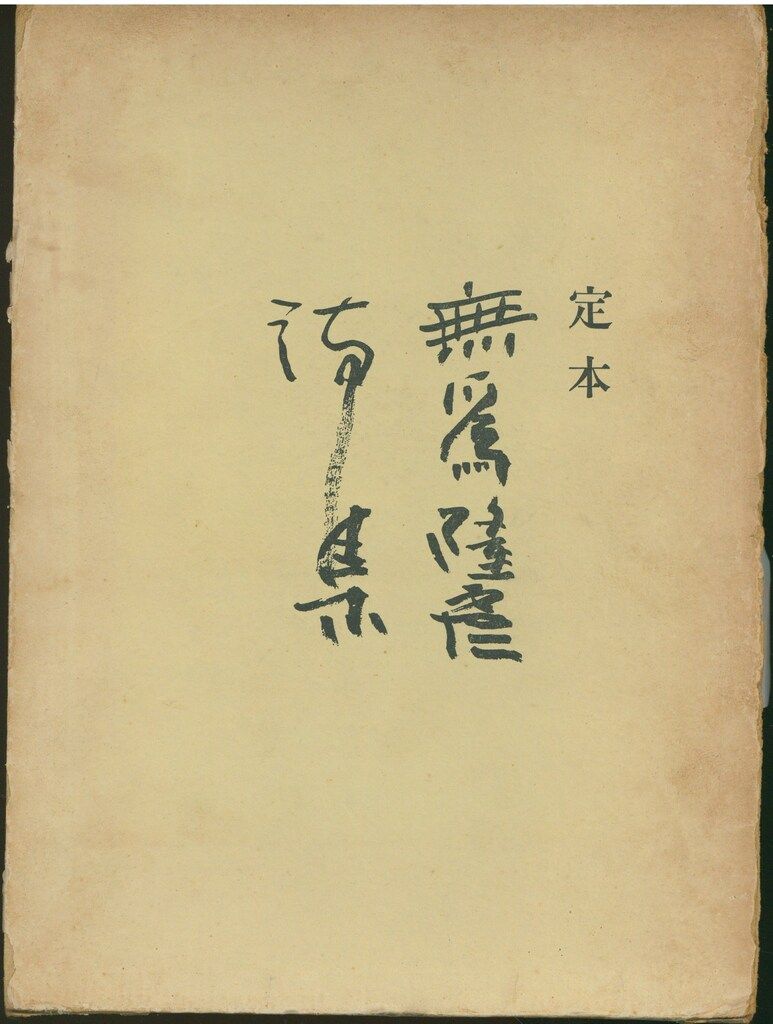 定本
無爲隆彦
詩集